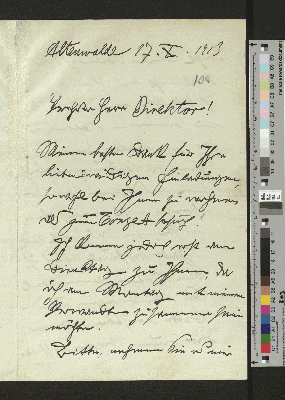 Altenwalde 17.X.1913
Verehrter Herr Direktor!
Meinen besten Dank für Ihre
liebenswürdigen Einladungen,
sowohl bei Ihnen zu wohnen,
als zum Conzert
Ich komme jedoch erst am
Dienstag zu Ihnen, da
ich am Montag mit meinen
Verwandten zusammen sein
möchte.
Bitte, nehmen Sie es mir